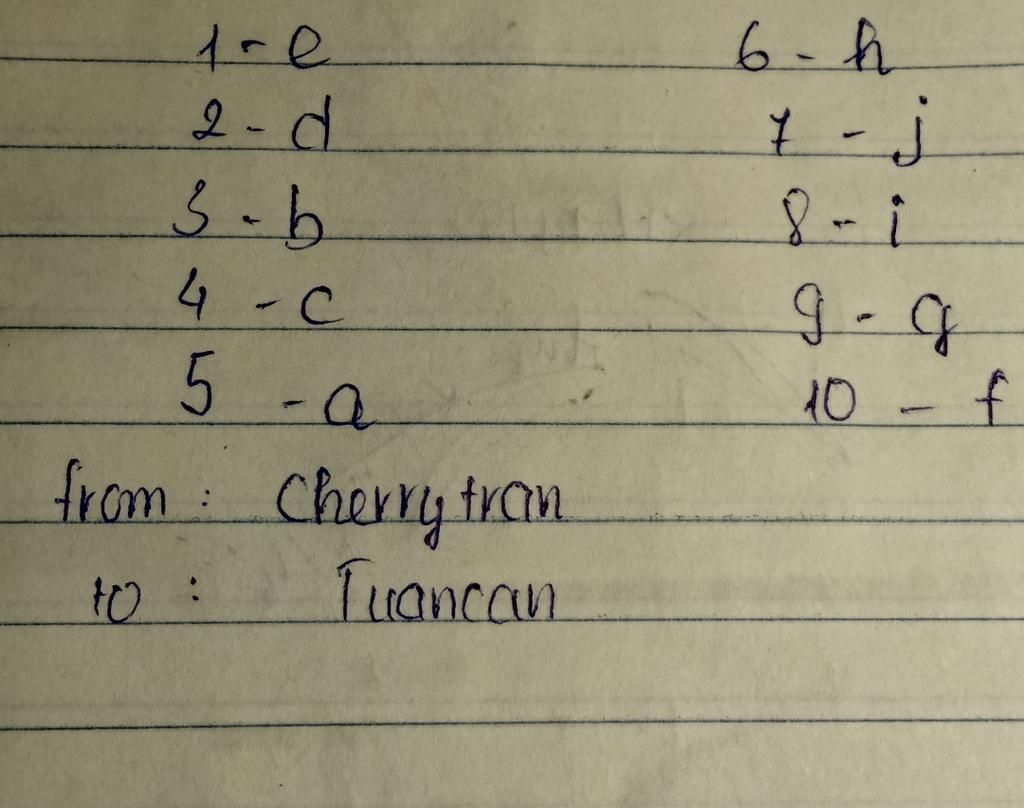 1 - e 6 - h
2 - d 7 - j
3 - b 8 - i
4 - c 9 - g
5 - a 10 - f
from : Cherrytran
to : Tuancan